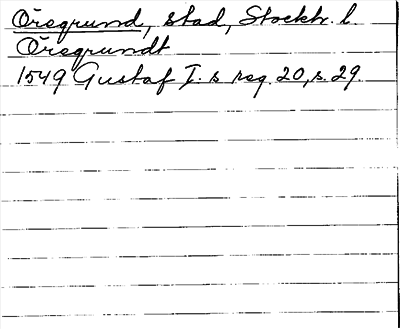 Öresgrund, stad, Stockh. l.
Öresgrundt
1549 Gustaf I:s reg. 20, s. 29.